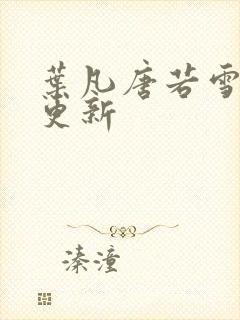 葉凡唐若雪
更新
溱潼